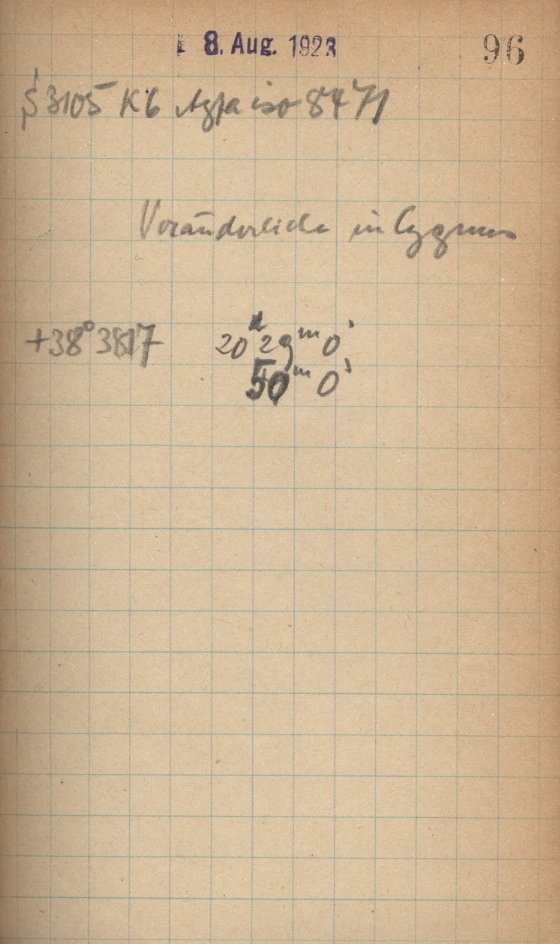 8. Aug. 1923
96
S 3105 K6 Agfa iso 8471
Veränderliche in Cygnus
+38° 3817 20ʰ 29ᵐ 0ˢ
50ᵐ 0ˢ